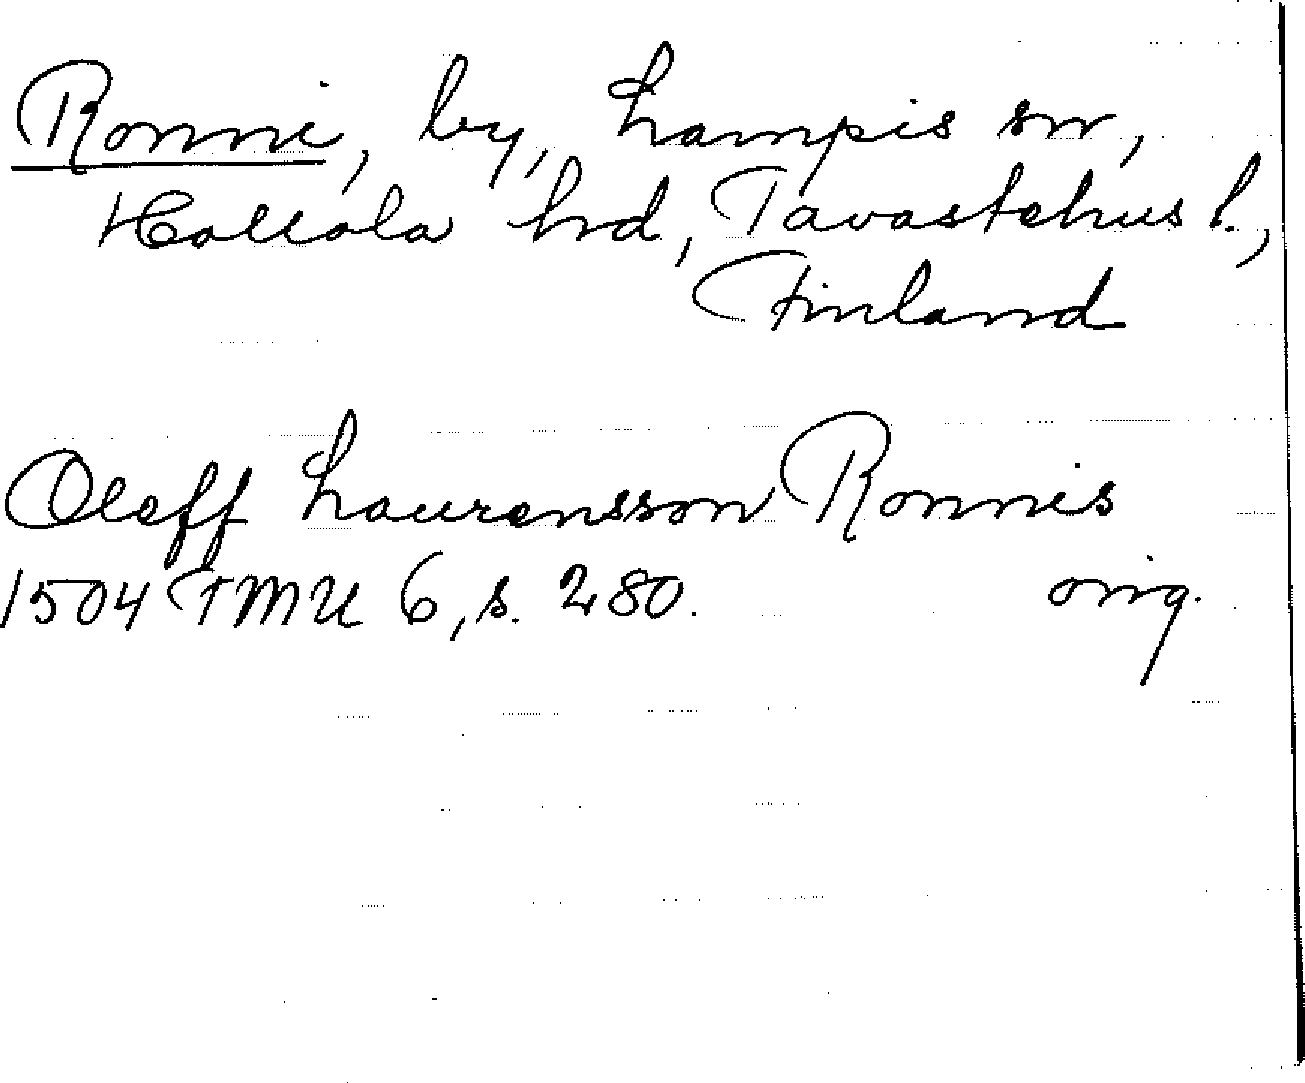 Ronni, by, Lampis sn,
Hollola hd, Tavastehus l.,
Finland
Oleff Laurensson Ronnis
1504 FMU 6, s. 280. orig.